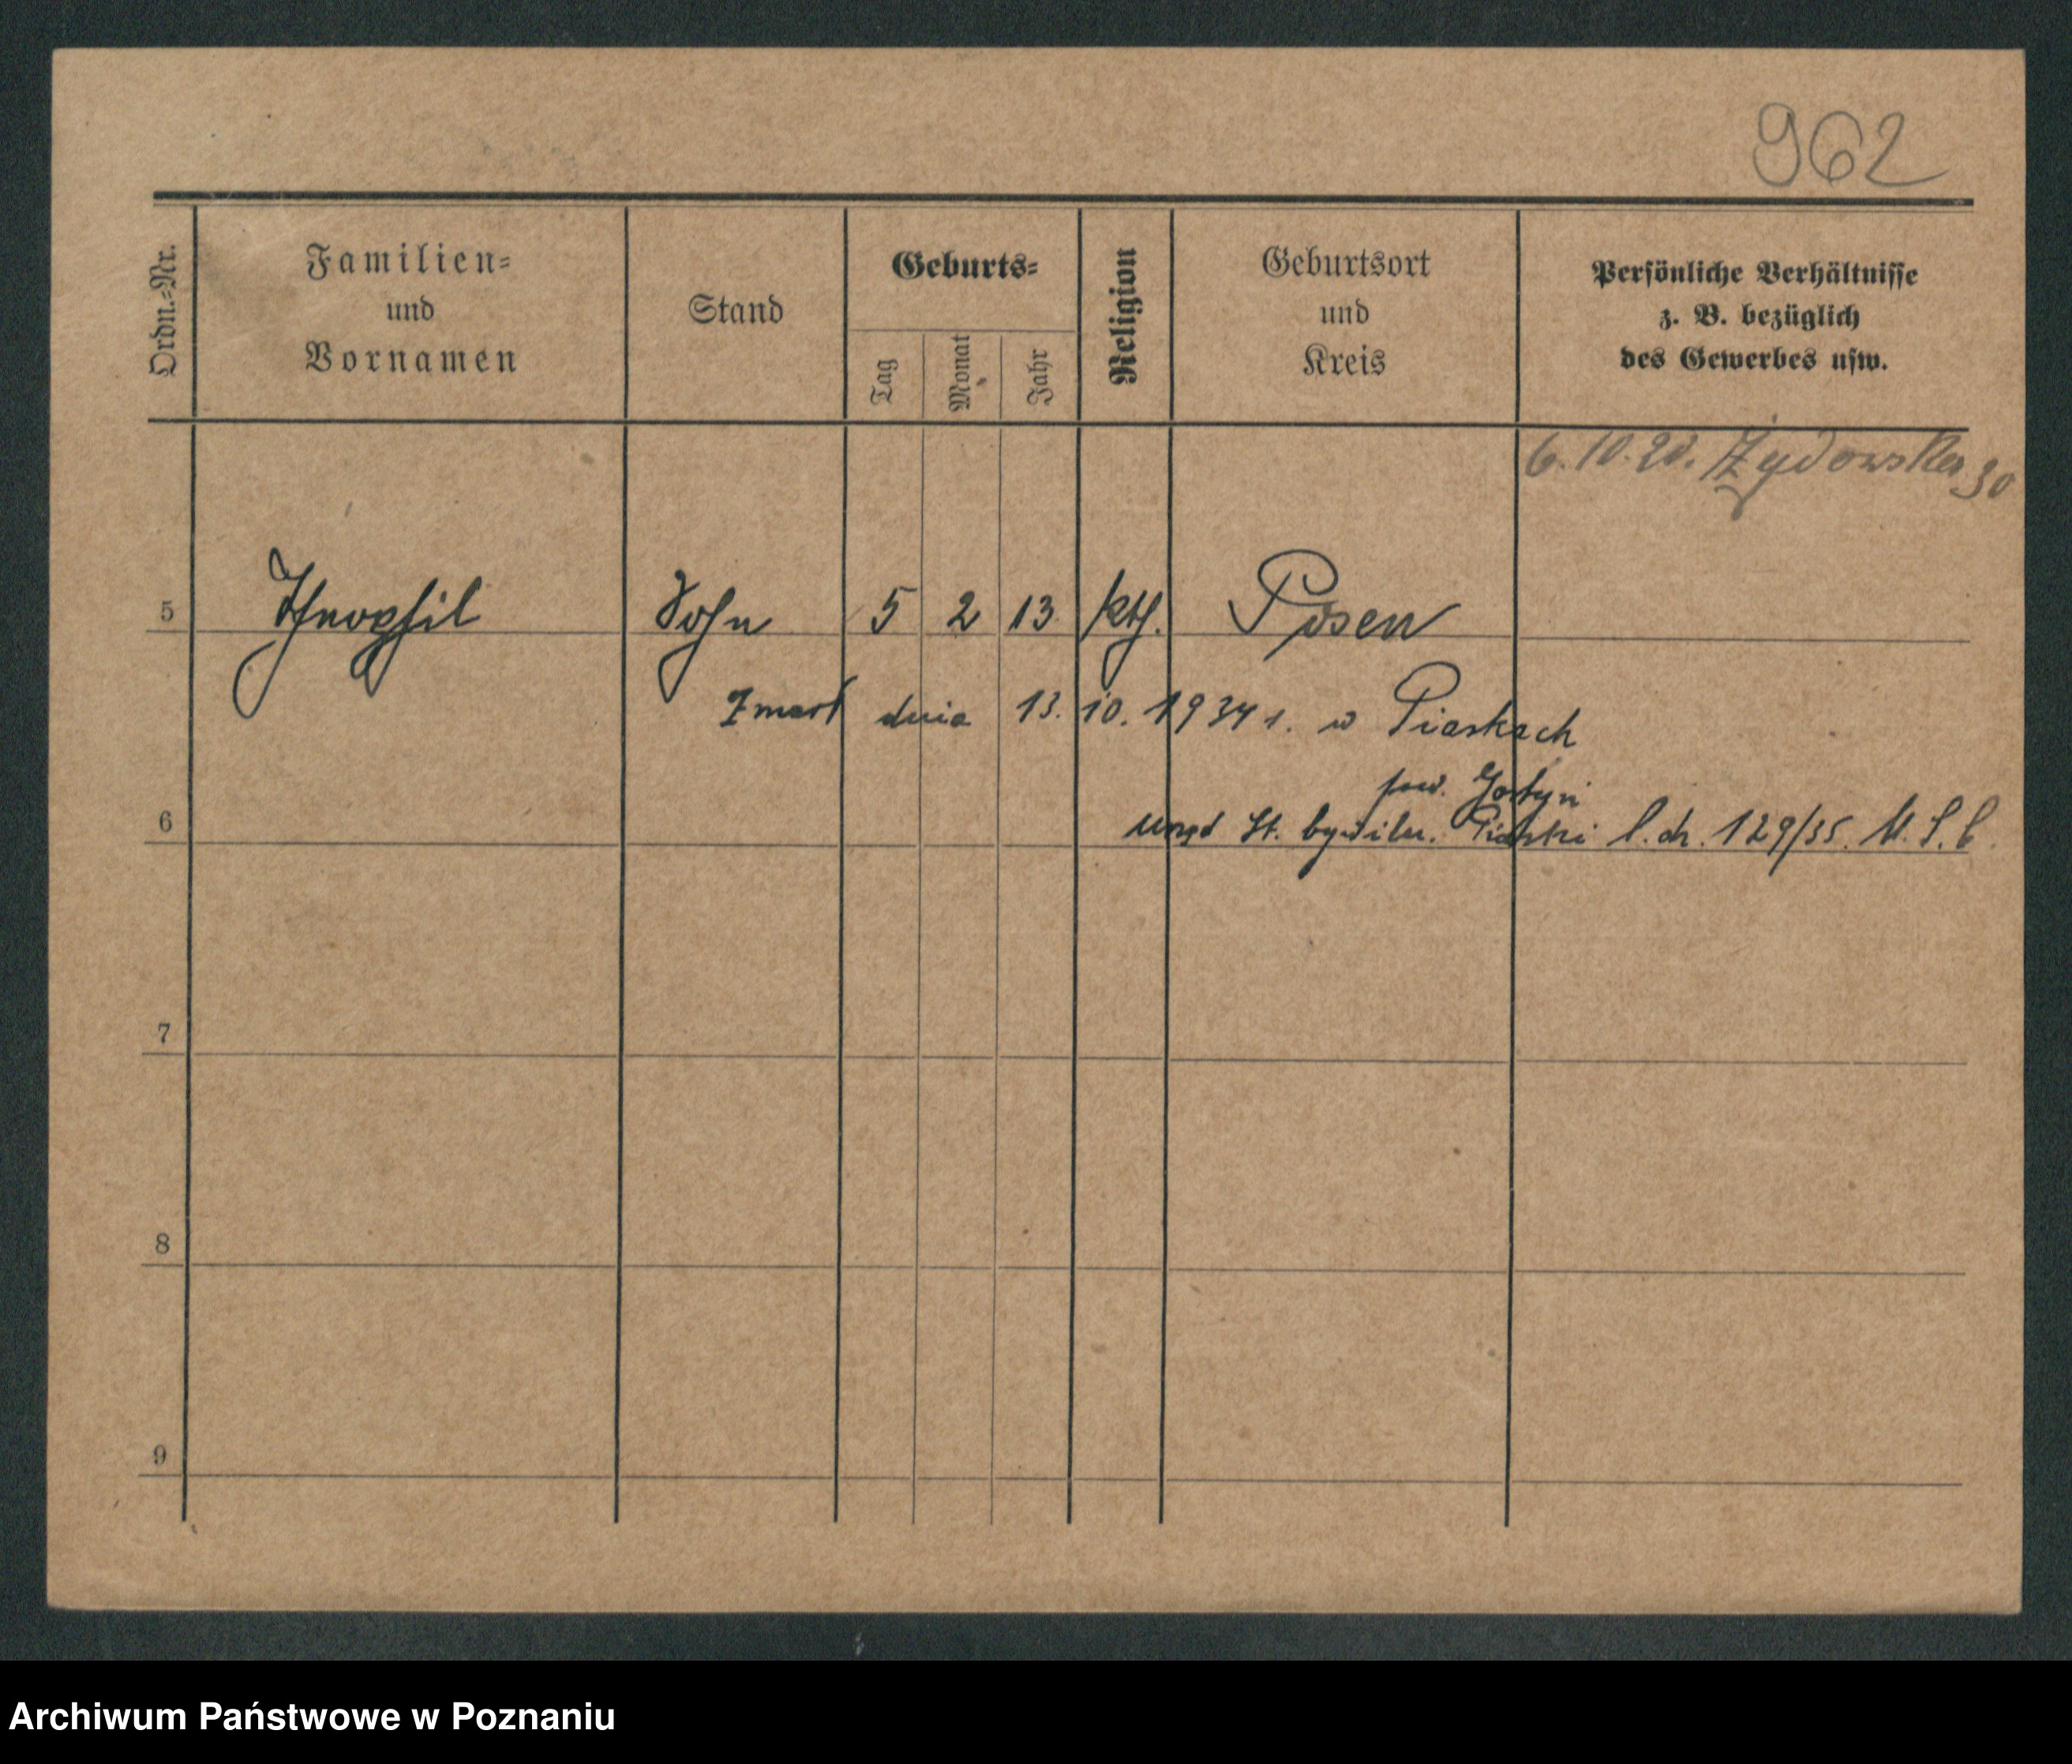 962
Ordn.=Nr.
Familien=
und
Vornamen
Stand
Geburts=
Tag
Monat
Jahr
Religion
Geburtsort
und
Kreis
Persönliche Verhältnisse
z. B. bezüglich
des Gewerbes usw.
6.10.20. Żydowska 30
5 Theophil Sohn 5 2 13 kth. Posen
Zmarł dnia 13.10.1934 r. w Piaskach
pow. Gostyń
6 urząd St. cywiln. Piaski l. ch. 129/35.
7
8
9
Archiwum Państwowe w Poznaniu